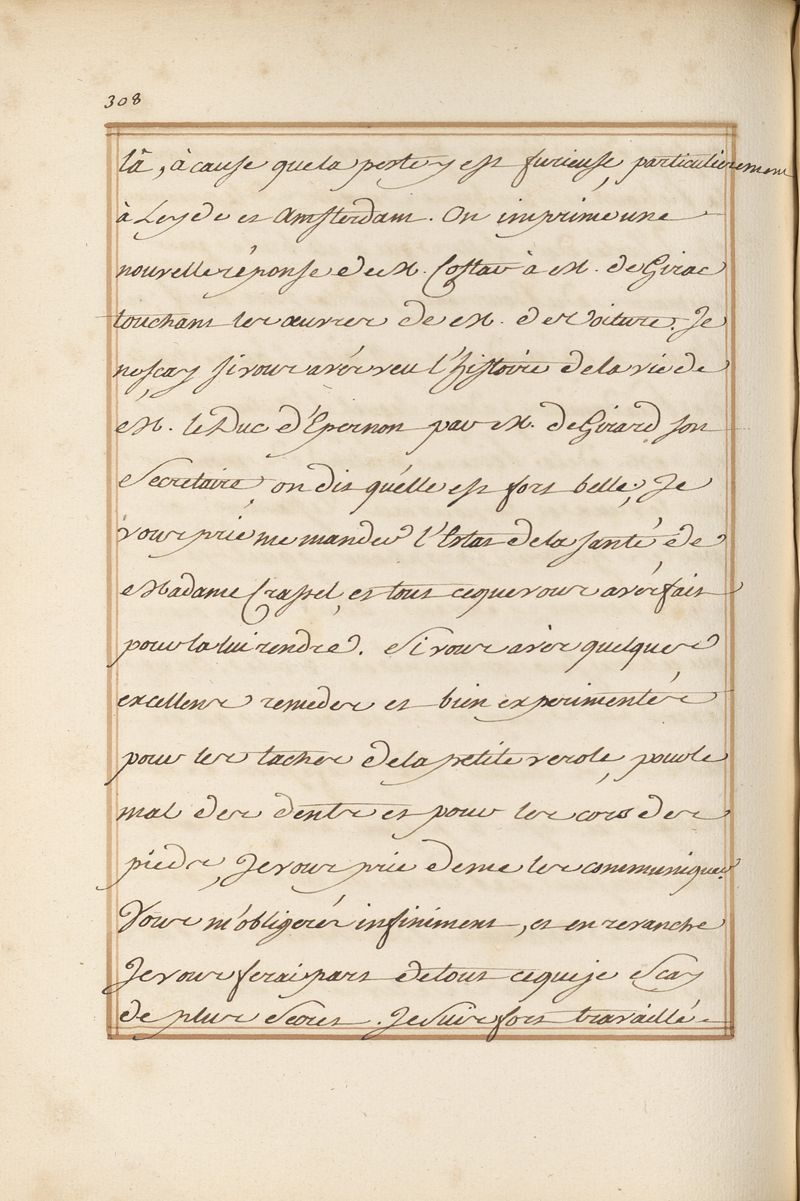 308
là, à cause que la peste y est furieuse, particulierement
à Leyde et Amsterdam. On imprime une
nouvelle réponse de M. Costar à M. de Girac
touchant les œuvres de M. de Voiture. Je
ne sçay si vous avés veu l'histoire de la vie de
M. le Duc d'Epernon par M. de Girard son
Secretaire, on dit qu'elle est fort belle; Je
vous prie me mander l'Estat de la santé de
Madame Crassel, et tout ce que vous avés fait
pour la lui rendre. Si vous avés quelques
excellens remedes et bien experimentés
pour les taches de la petite verole, pour le
mal des dents et pour les cors des
pieds, Je vous prie de me les communiquer.
Vous m'obligerés infiniment, et en revanche
Je vous ferai part de tout ce que je sçay
de plus secret. Je suis fort travaillé